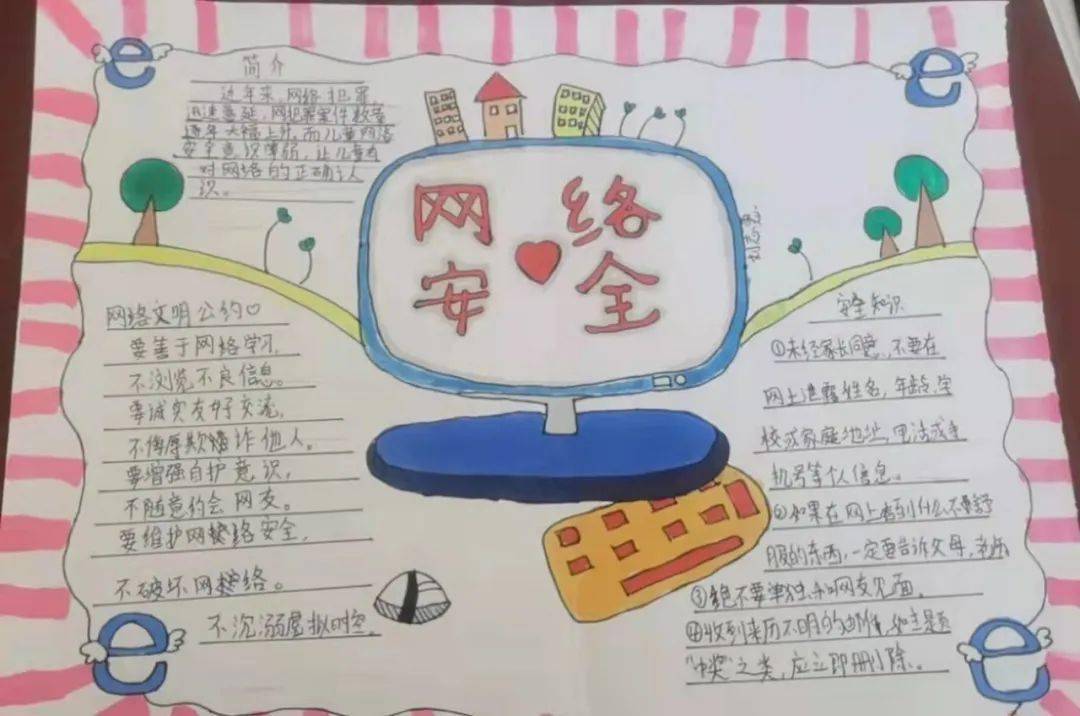 简介
近年来,网络犯罪,
迅速蔓延,网犯罪案件数量
逐年大幅上升,而儿童网络
安全意识薄弱,让儿童有
对网络的正确认
识。
网络
安全
网络文明公约
要善于网络学习,
不浏览不良信息。
要诚实友好交流,
不侮辱欺诈他人。
要增强自护意识,
不随意约会网友。
要维护网络安全,
不破坏网络。
不沉溺虚拟时空。
安全知识
①未经家长同意,不要在
网上泄露姓名,年龄,学
校或家庭地址,电话或手
机号等个人信息。
②如果在网上看到什么不要舒
服的东西,一定要告诉父母,老师
③绝不要单独和网友见面。
④收到来历不明的邮件,如主题
“中奖”之类,应立即删除。
e
e
e
e